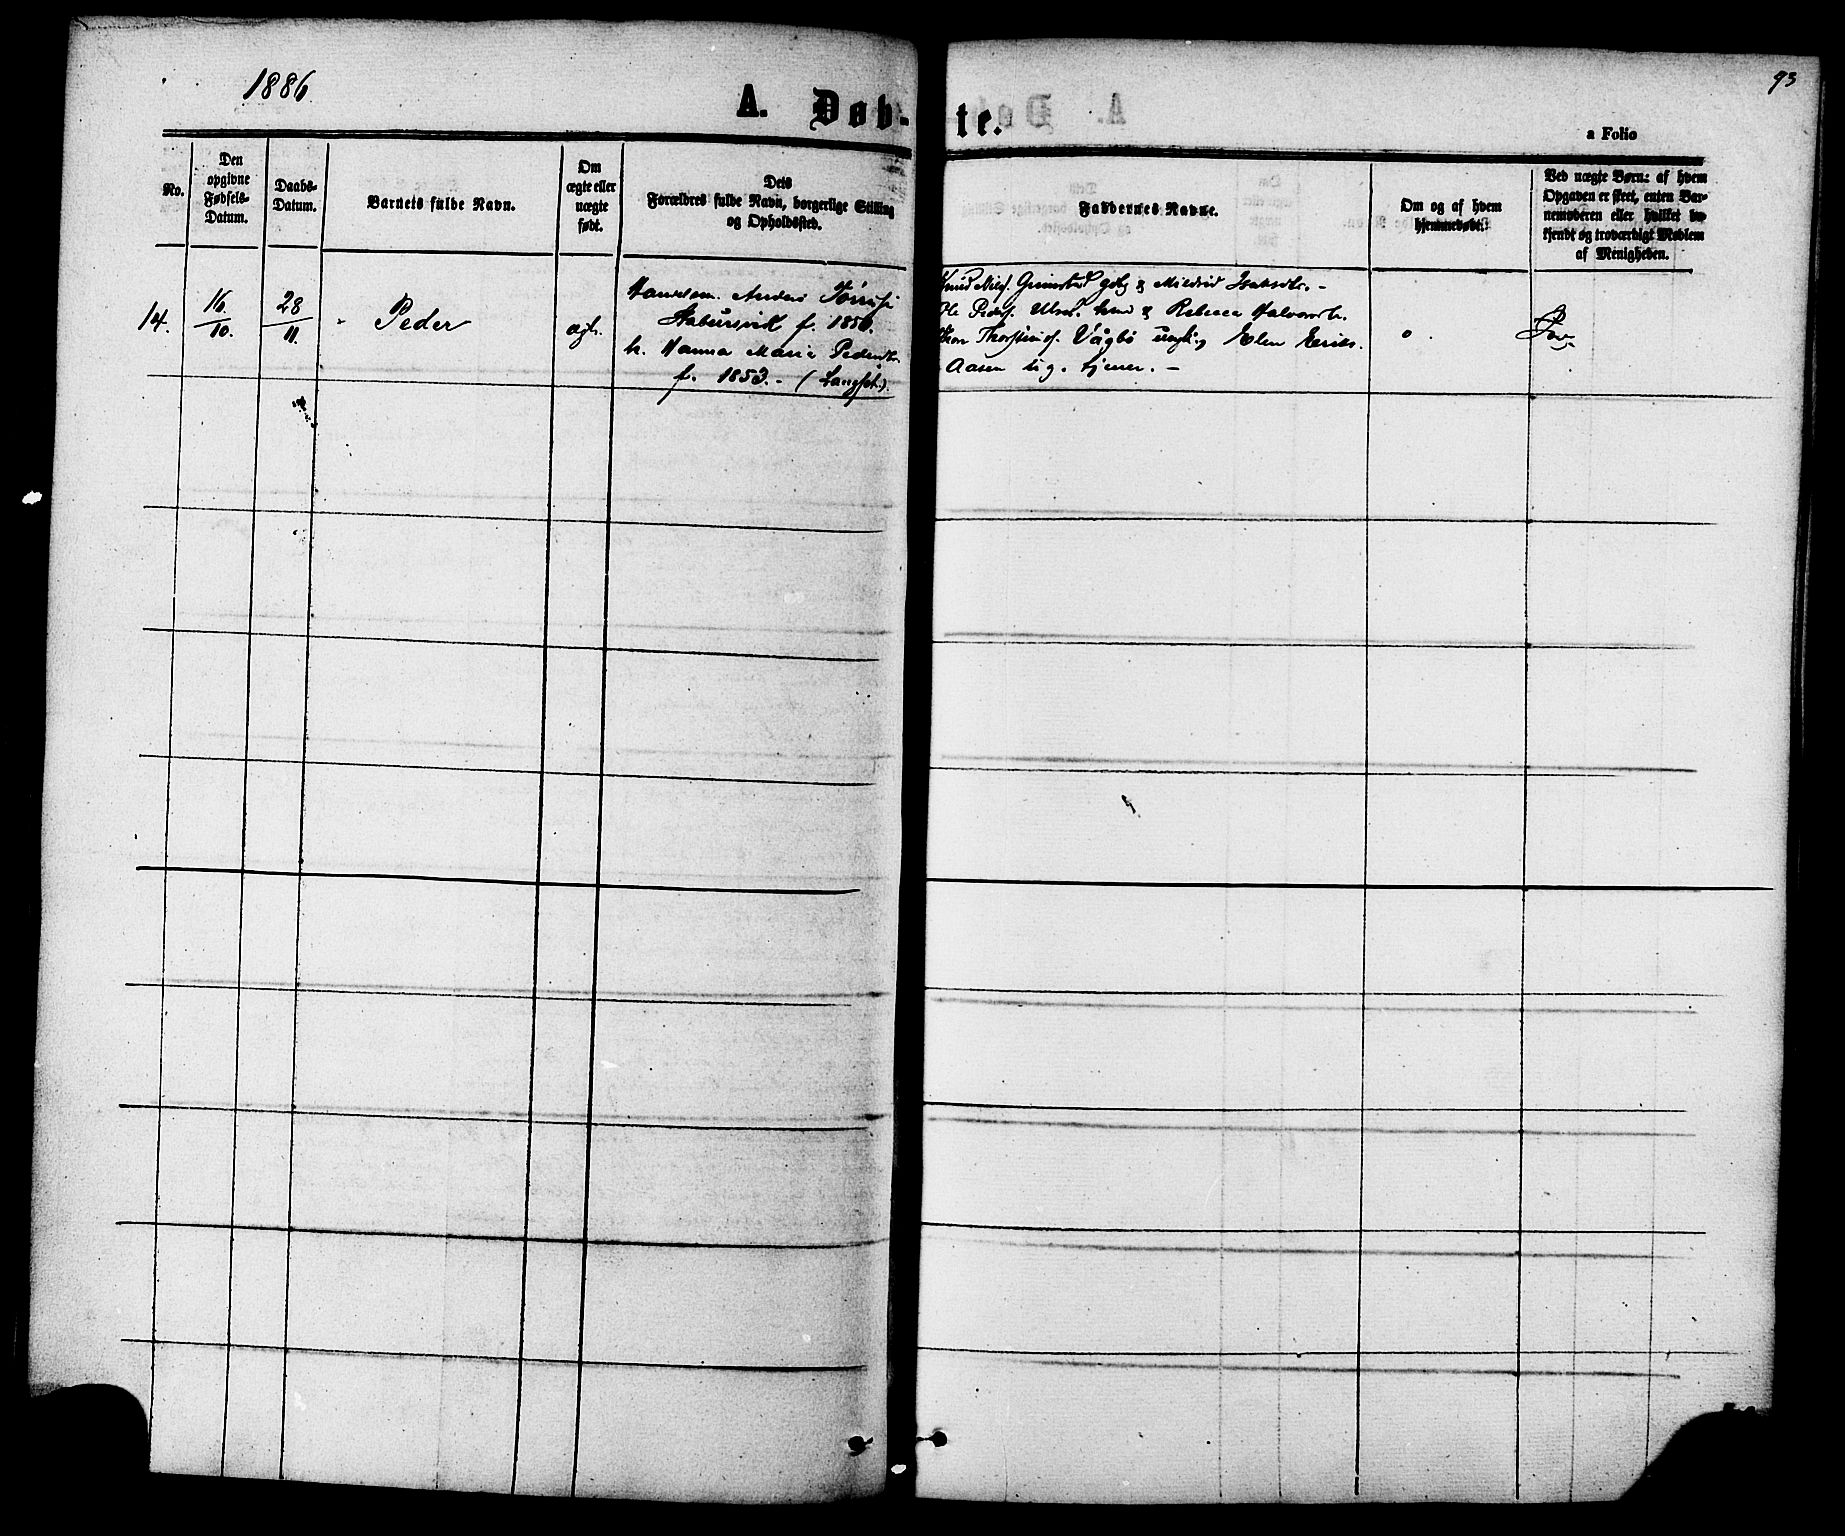 1886
93
A. Døb-
te.
a Folio
No.
Den
opgivne
Fødsels-
Datum.
Daabs-
Datum.
Barnets fulde Navn.
Om
ægte eller
uægte
født.
Dets
Forældres fulde Navn, borgerlige Stilling
og Opholdssted.
Faddernes Navne.
Om og af hvem
hjemmedøbt.
Ved uægte Børn: af hvem
Opgaven er skeet, enten Bar-
nemoderen eller hvilket be-
kjendt og troværdigt Medlem
af Menigheden.
14.
16
10.
28
11.
Peder
Handelsm. Anders
f. 1850.
h. Hanna Maria Pedersdtr.
f. 1853. - (Langset.)
Knud Nils. Grimstad & Mildrid
Ole Peders. & Rebecca Halvorsdtr.
Vågbø Elen Eriks.
Aasen tjener. -